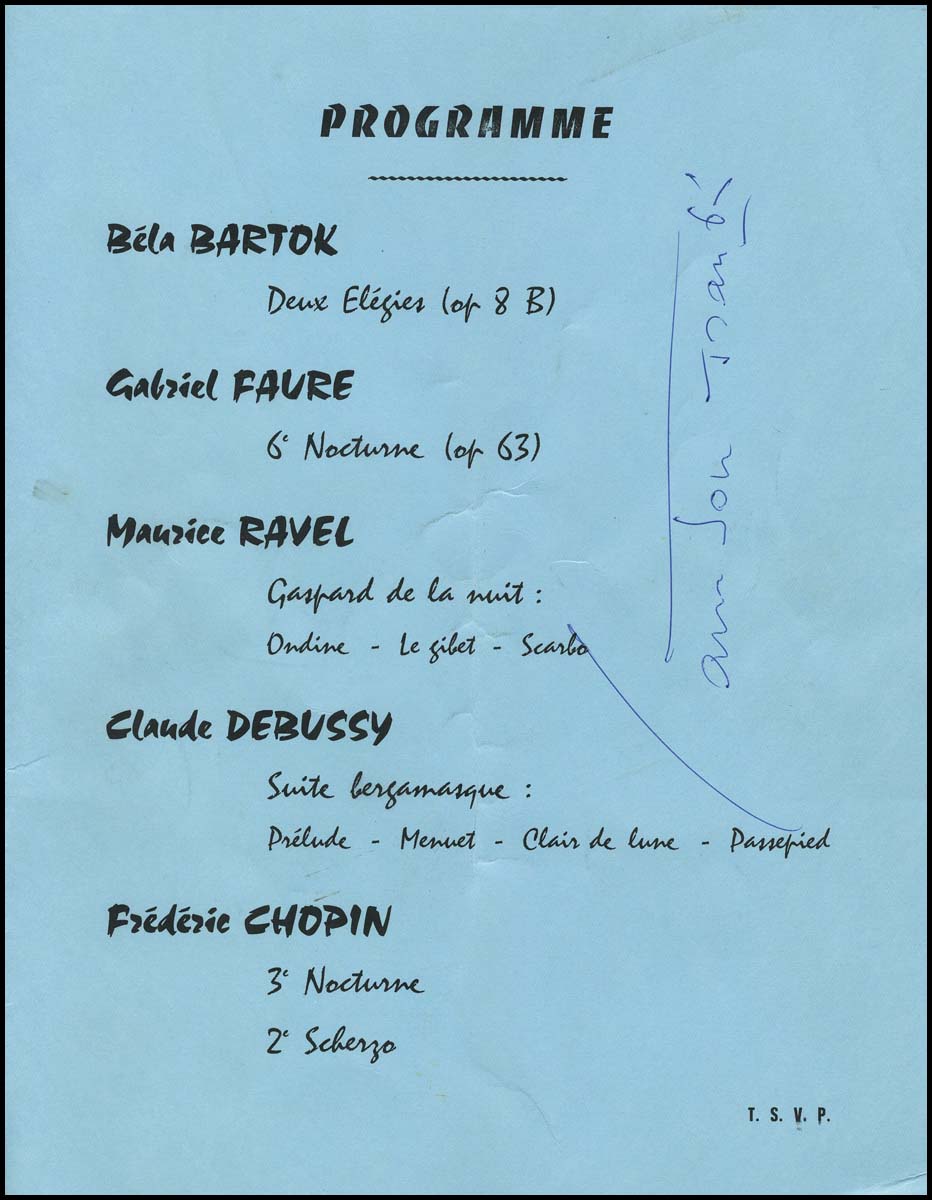 PROGRAMME
Béla BARTOK
Deux Elégies (op 8 B)
Gabriel FAURE
6e Nocturne (op 63)
Maurice RAVEL
Gaspard de la nuit :
Ondine - Le gibet - Scarbo
Claude DEBUSSY
Suite bergamasque :
Prélude - Menuet - Clair de lune - Passepied
Frédéric CHOPIN
3e Nocturne
2e Scherzo
T. S. V. P.
Son